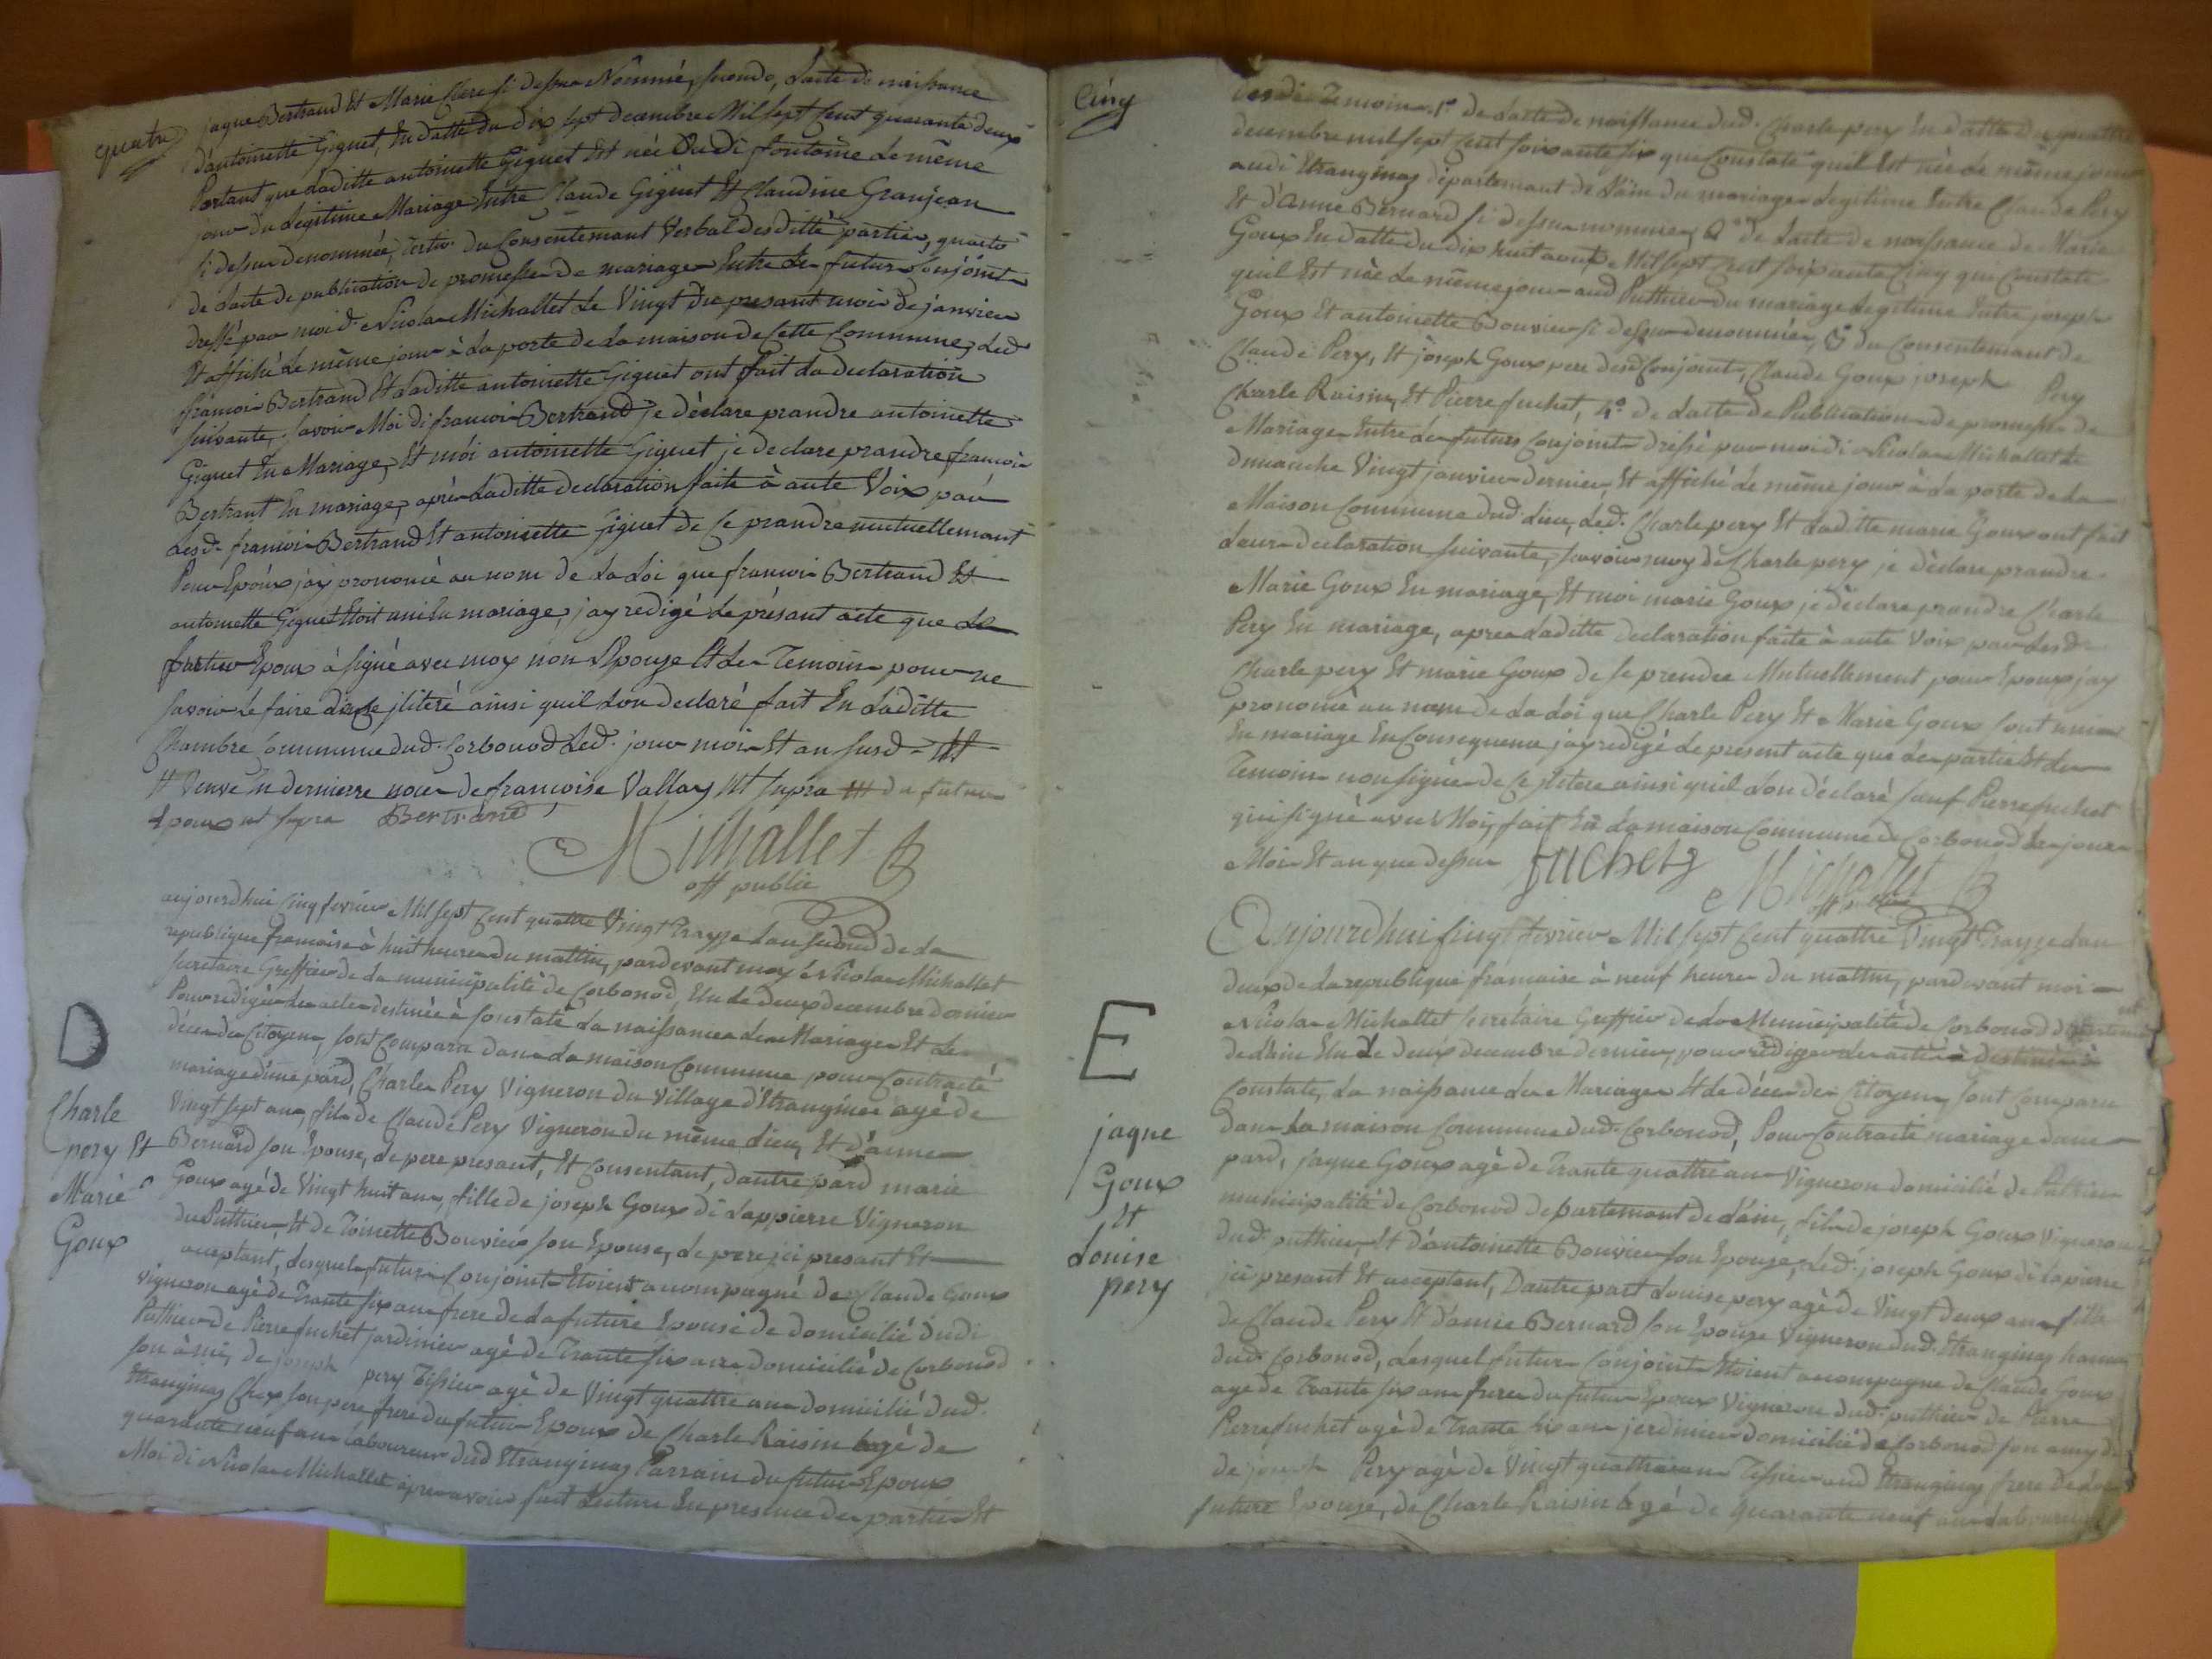 quatre
jaque Bertrand Et Marie Clere si dessus Nommé, secondo, Lacte de naissance
d'antoinette Giguet, En datte du dix sept decembre Mil sept Cent quarante deux
Portant que Laditte antoinette Giguet Est née Dudi fontaine Le même
jour du Legitime Mariage Entre Claude Giguet Et Claudine Granjean
si dessus denommée, Tertio du Consentemant Verbal desditte partie, quarto
de Lacte de publication de promesse de mariage Entre Les futur Conjoint
dressé par moi d. Nicolas Michallet Le Vingt du presant mois de janvier
Et affiché Le même jour à La porte de La maison de Cette Commune, Led
francois Bertrand Et Laditte antoinette Giguet ont fait La declaration
suivante, savoir Moi di francois Bertrand je déclare prandre antoinette
Giguet En Mariage, Et moi antoinette Giguet je declare prandre francois
Bertrant En mariage, après Laditte declaration faite à aute Voix par
Lesd. francois Bertrand Et antoinette Giguet de se prandre mutuellemant
Pour Epoux j'ay prononcé au nom de La Loi que francois Bertrand Et
antoinette Giguet Etoit uni En mariage, jay redigé Le présant acte que Le
futur Epoux à signé avec moy non L'Epouze Et Les Temoins pour ne
savoir Le faire de ce jliteré ainsi quil Lon declaré fait En Laditte
Chambre Commune dud. Corbonod Led. jour mois Et an susd
Et Venve En dernierre noces de francoise Vallay Ut supra du futur
Epoux ut supra Bertrand
Michallet
off public
aujourdhui Cinq fevrier Mil sept Cent quattre Vingt Trayze Lan second de La
republique francaise à huit heures du mattin, pardevant moy Nicolas Michallet
secretaire Greffier de La municipalité de Corbonod, Elu Le deux decembre dernier
Pour redigér Les actes destinée à Constaté La naissance Les Mariages Et Le
décès des Citoyens, sont Comparu dans La maison Commune pour Contracté
D
Charle
pery Et
Marie
Goux
mariage d'une pard, Charle Pery Vigneron du Village d'Etranginas agé de
Vingt sept ans, fils de Claude Pery Vigneron du même Lieu, Et d'anne
Bernard son Epouse, Le pere presant, Et Consentant, dautre pard marie
Goux agé de Vingt huit ans, fille de joseph Goux di Lappierre Vigneron
du Puthier, Et de Toinette Bouvier son Epouse, Le pere jci presant Et
acceptant, Lesquels futurs Conjoint Etoient acompagné de Claude Goux
vigneron agé de Trante six ans frere de La future Epouse de domicilié dudi
Puthier de Pierre fuchet jardinier agé de Trante six ans domicilié de Corbonod
son ami, de joseph pery Tissier agé de Vingt quattre ans domicilié dud.
Etranginas Chez son pere frere du futur Epoux de Charle Raisin agé de
quarante neuf ans Laboureur dud Etranginas Parrain du futur Epoux
Moi di Nicolas Michallet apres avoir fait Lecture En presence des parties Et
Cinq
desdi Temoins 1° de Lacte de naissance dud. Charle pery En datte du quattre
decembre mil sept Cent soixante six que Constate quil Est née Le même jour
audi Etranginas departemant de Lain du mariage Legitime Entre Claude Pery
Et d'Anne Bernard si dessus nommée, 2° de Lacte de naissance de Marie
Goux En datte du dix huit aout Mil sept Cent soixante Cinq que Constate
quil Est née Le même jour aud Puthier du mariage Legitime Entre joseph
Goux Et antoinette Bouvier si dessus denommée, 3° du Consentemant de
Claude Pery, Et joseph Goux pere desd Conjoint, Claude Goux joseph Pery
Charle Raisin, Et Pierre fuchet, 4° de Lacte de Publication de promesse de
Mariage Entre Les futurs Conjoint dréssé par moi di Nicolas Michallet Le
dimanche Vingt janvier dernier, Et affiché Le même jour à La porte de La
Maison Commune dud. Lieu, Led. Charle pery Et Laditte marie Goux ont fait
Leurs declaration suivante, savoir moy di Charle pery je déclare prandre
Marie Goux En mariage, Et moi marie Goux je déclare prandre Charle
Pery En mariage, apres Laditte declaration faite à aute Voix par Lesd.
Charle pery Et marie Goux de se prendre Mutuellement pour Epoux jay
prononcé au nom de La Loi que Charle Pery Et Marie Goux sont unies
En mariage En Consequence j'ay redigé Le present acte que Les partie Et Les
Temoins non signée de ce jlitere ainsi quil Lon déclaré sauf Pierre fuchet
qui signé avec Moi, fait En La maison Commune de Corbonod Les jour
Mois Et an que dessus fuchet
Michallet
off public
Aujourdhui Cinq fevrier Mil sept Cent quattre Vingt Trayze Lan
deux de La republique francaise à neuf heures du mattin, pardevant moi
Nicolas Michallet secrétaire Greffier de La Municipalité de Corbonod
de Lain Elu Le deux decembre dernier, pour redigger Les actes destinée à
E
jaque
Goux
Et
Louise
pery
Constate, La naissance Les Mariages Et Le décès des Citoyens, sont Comparu
dans La maison Commune dud. Corbonod, Pour Contracté mariage dune
pard, jaque Goux agé de Trante quattre ans Vigneron domicilié de Puthier
municipalité de Corbonod departemant de Lain, fils de joseph Goux Vigneron
dud. puthier, Et d'antoinette Bouvier son Epouze, Led. joseph Goux di Lapierre
jci presant Et acceptant, Dautre part Louise pery agé de Vingt deux ans fille
de Claude Pery Et d'anne Bernard son Epouze Vigneron dud. Etranginas
dud. Corbonod, Lesquel futur Conjoint Etoient acompagne de Claude Goux
agé de Trante six ans frere du futur Epoux Vigneron dud. puthier de Pierre
Pierre fuchet agé de Trante six ans jerdinier domicilié de Corbonod son amy de
de joseph Pery agé de Vingt quattre ans Tissier aud Etranginas frere de La
future Epouze, de Charle Raisin agé de quarante neuf ans Laboureur